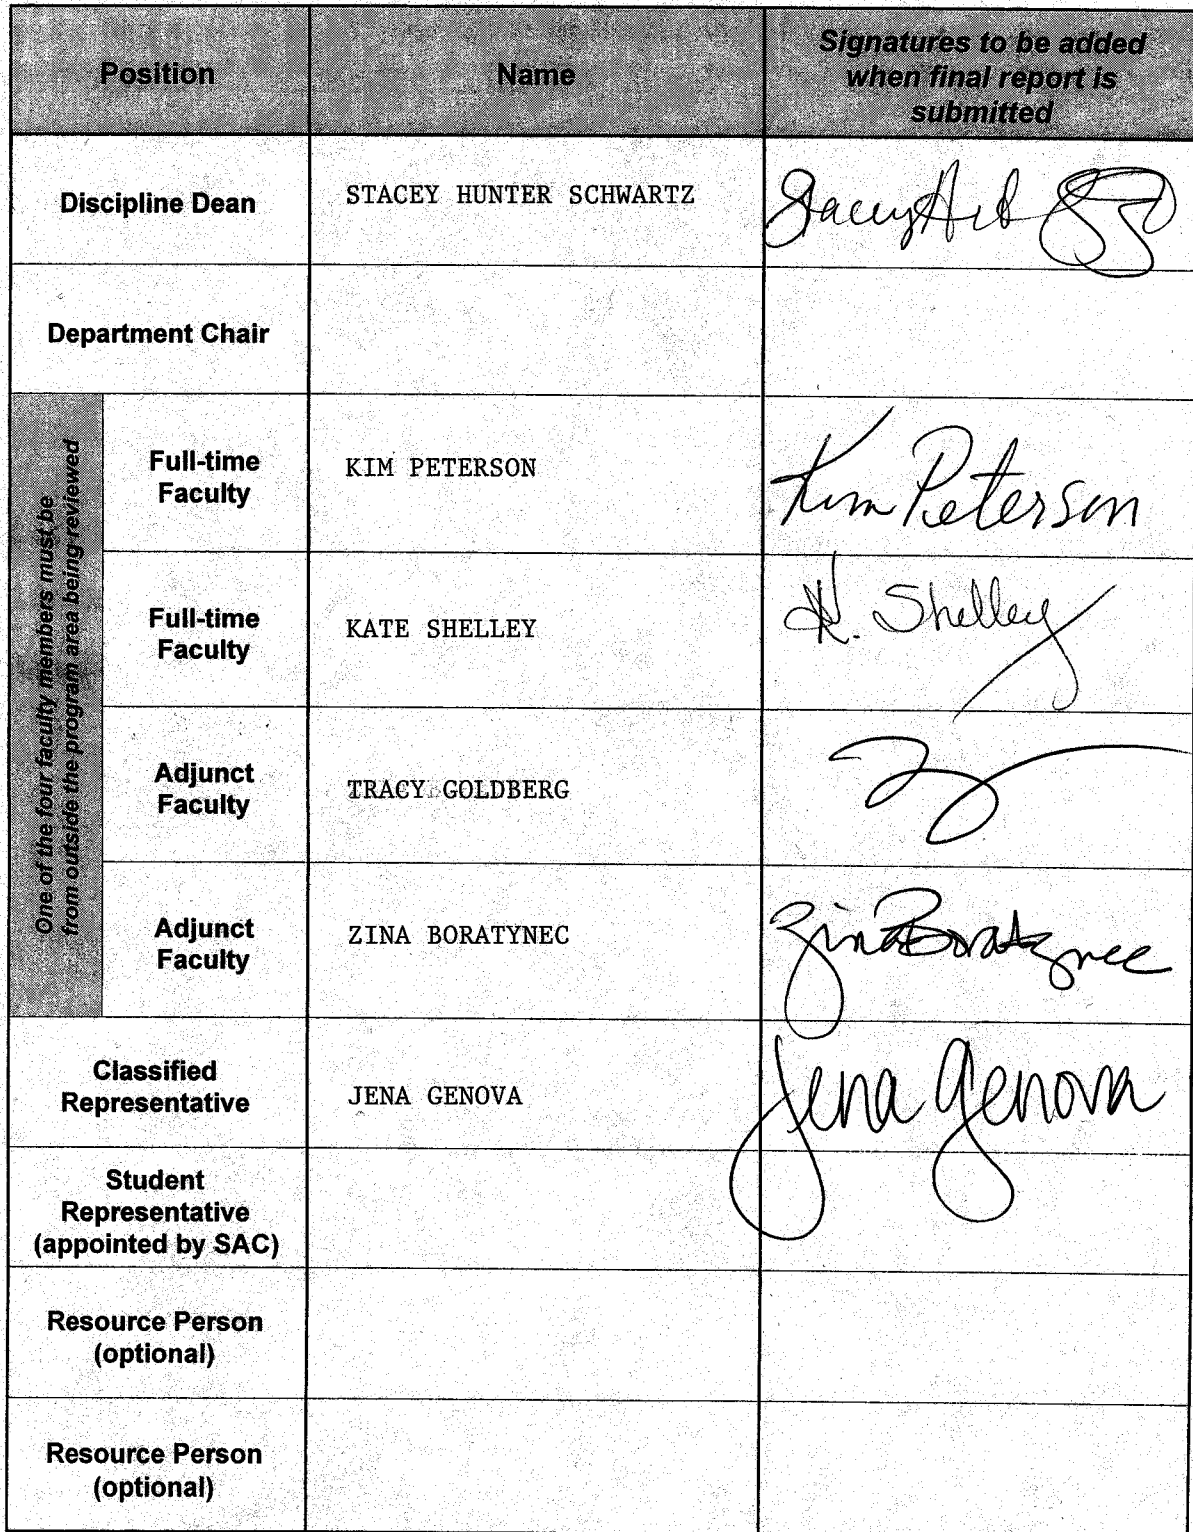 Position
Name
Signatures to be added
when final report is
submitted
Discipline Dean
STACEY HUNTER SCHWARTZ
Department Chair
One of the four faculty members must be
from outside the program area being reviewed
Full-time
Faculty
KIM PETERSON
Kim Peterson
Full-time
Faculty
KATE SHELLEY
K. Shelley
Adjunct
Faculty
TRACY GOLDBERG
Adjunct
Faculty
ZINA BORATYNEC
Zina Boratynec
Classified
Representative
JENA GENOVA
Jena Genova
Student
Representative
(appointed by SAC)
Resource Person
(optional)
Resource Person
(optional)